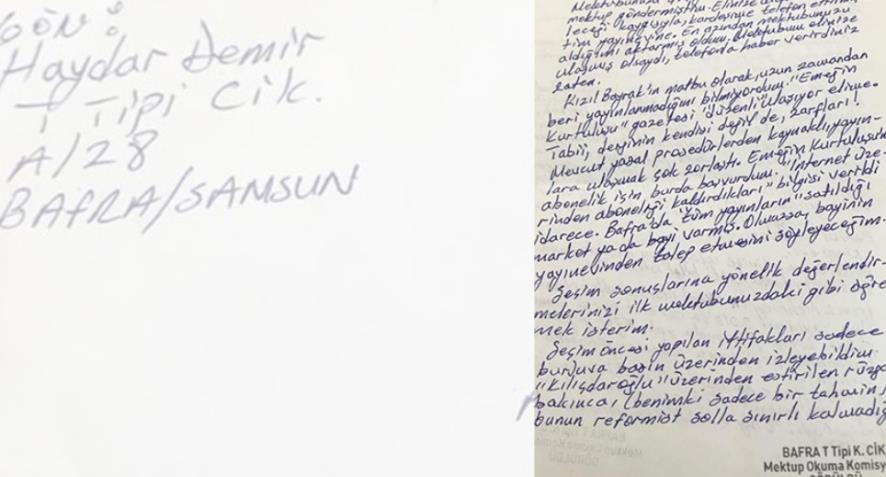 GÖN:
Haydar Demir
T Tipi Cik.
A/28
BAFRA/SAMSUN
Mektubunuzu
mektup göndermiştim. Elinize
leceği kaygısıyla, kardeşime telefon
tüm yayınevine. En azından mektubunuzu
aldığımı aktarmış oldum. Mektubum elinize
ulaşmış olsaydı, telefonla haber verirdiniz
zaten.
Kızıl Bayrak'ın matbu olarak, uzun zamandan
beri yayınlanmadığını bilmiyordum. "Emeğin
Kurtuluşu" gazetesi "düzenli" ulaşıyor elime.
Tabii, derginin kendisi değil de, zarfları!
Mevcut yasal prosedürlerden kaynaklı, yayın-
lara ulaşmak çok zorlaştı. Emeğin Kurtuluşu'n
abonelik için burda başvurdum. "İnternet üze-
rinden aboneliği kaldırdıkları" bilgisi verildi
idarece. Bafra'da "tüm yayınların" satıldığı
market ya da bayi varmış. Olmazsa, bayinin
yayınevinden talep etmesini söyleyeceğim.
Seçim sonuçlarına yönelik değerlendir-
melerinizi ilk mektubunuzdaki gibi öğre
mek isterim.
Seçim öncesi yapılan ittifakları sadece
burjuva basın üzerinden izleyebildim.
"Kılışdaroğlu" üzerinden estirilen rüzga
bakınca, (benimki sadece bir tahmin,
bunun reformist solla sınırlı kalmadığ
BAFRA T Tipi K. CİK
Mektup Okuma Komisy
GÖRÜLDÜ